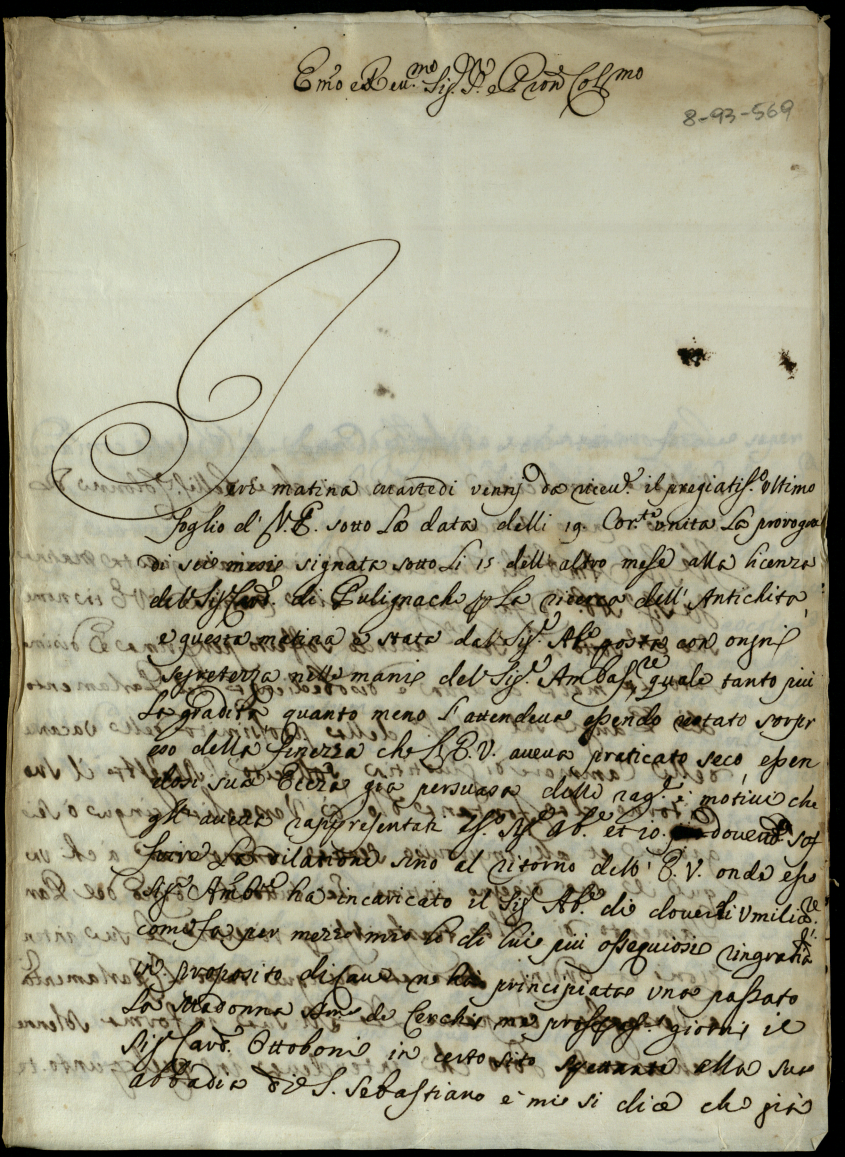 Em̃o e Reu.mo Sig.r P.ne e P.ron Col.mo
8-93-569
Ieri matina martedi venni da riceu.e il pregiatiss.o ultimo
foglio d' V.E. sotto La data delli 19 Cor.te unita La prorogha
di seie mesie signata sotto Li 15 dell'altro mese alla licenza
del Sig. Card. di Pulignach p La ricerca dell'Antichita
e questa matina è stata dal Sig.r Ab.e posta con ongni
segreterza nelle manie del Sig.r Ambas.re quale tanto piu
La gradita quanto meno L'attendeva essendo restato sorpr
eso della finezza che L'E.V. aueua praticato seco essen
dosi sua Eccza gia persuasa delle rag.i e motiui che
gli aueua rappresentati ess. Sig. Ab.e et io douerse sof
frire La dilatione sino al ritorno dell' E.V. onde esso
Sig.r Amb.re ha incaricato il Sig. Ab.e di douerli Vmiliar
come fa per mezzo mio Le di luie piu ossequiosie ringratia
in proposito di caue ne ha principiata una passato
La Madonna de Cerchie ne giornie il
Sig. Card. Ottobonie in certo sito alla sua
abbadia die S. Sebastiano e mie si dice che gia